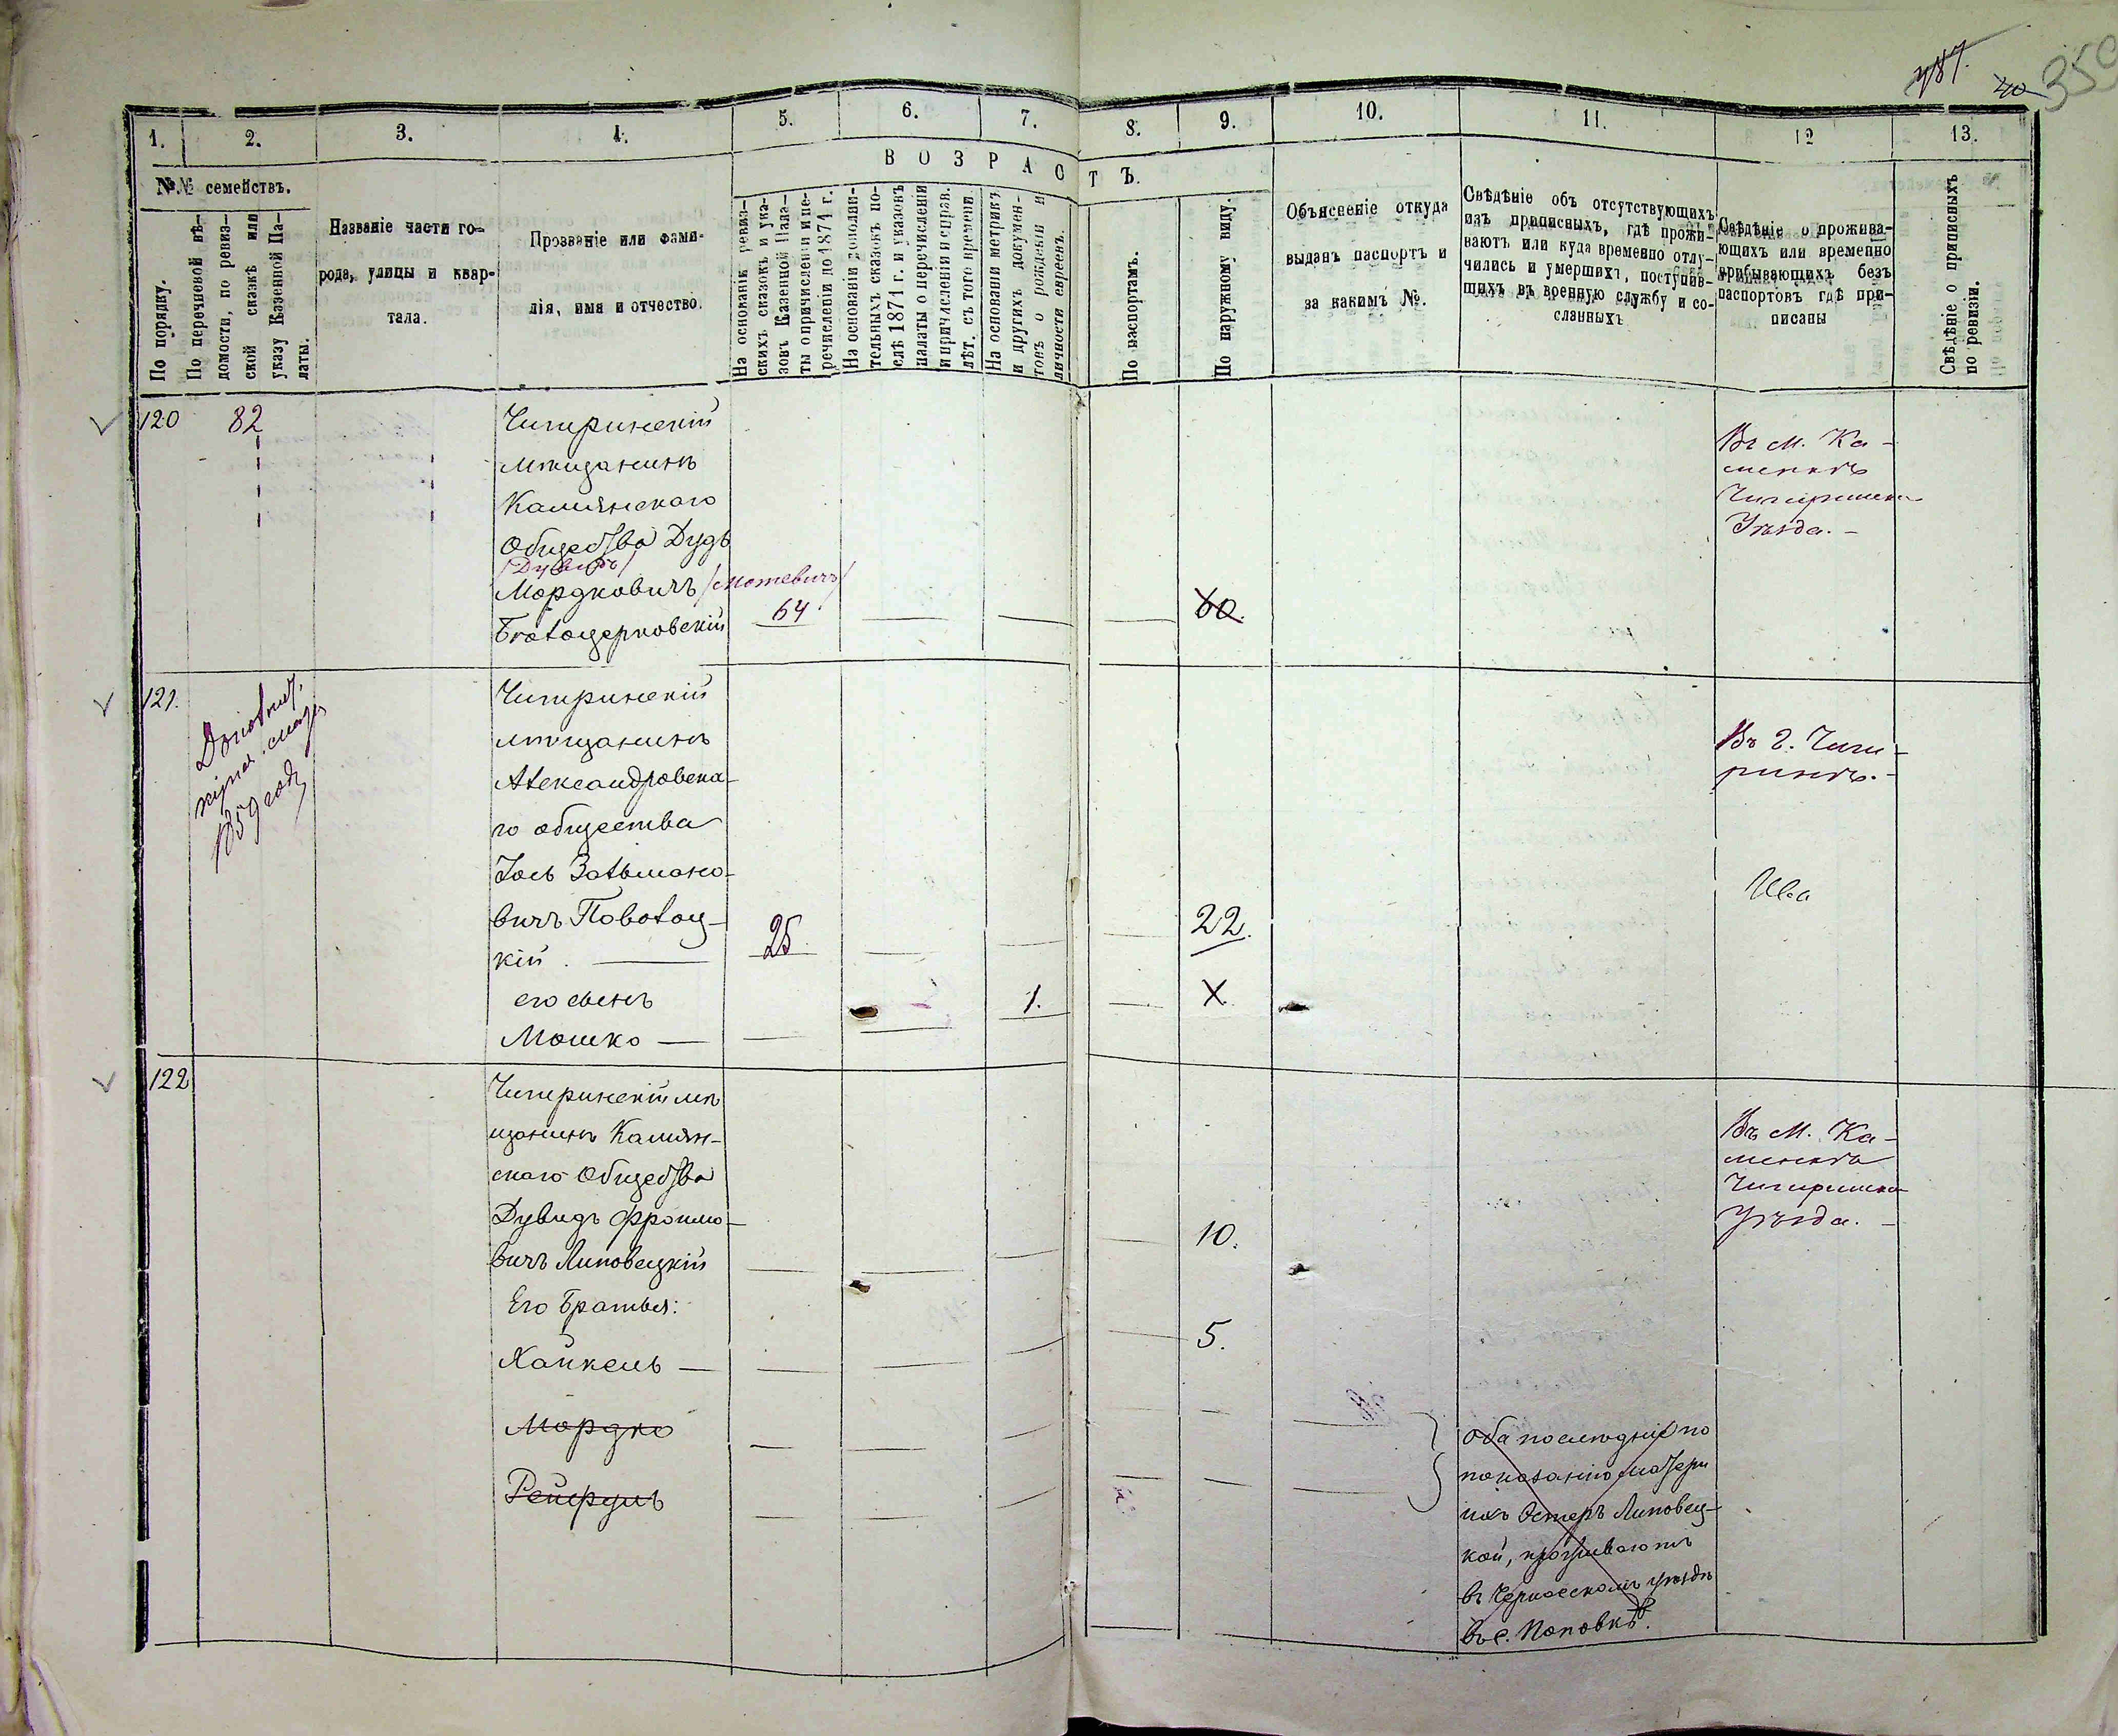 787.
40
359
1.
2.
3.
4.
5.
6.
7.
8.
9.
10.
11.
12
13.
ВОЗРАСТЪ.
№№ семействъ.
По порядку.
По перечневой вѣ-
домости, по ревиз-
ской сказкѣ или
указу Казенной Па-
латы.
Названіе части го-
рода, улицы и квар-
тала.
Прозваніе или фами-
лія, имя и отчество.
На основаніи ревиз-
скихъ сказокъ и ука-
зовъ Казенной Пала-
ты о причисленіи и пе-
речисленіи до 1874 г.
На основаніи дополни-
тельныхъ сказокъ по-
слѣ 1874 г. и указовъ
палаты о перечисленіи
и причисленіи и справ.
лѣт. съ того времени.
На основаніи метрикъ
и другихъ докумен-
товъ о рожденіи и
личности евреевъ.
По паспортамъ.
По наружному виду.
Объясненіе откуда
выданъ паспортъ и
за какимъ №.
Свѣдѣніе объ отсутствующихъ
изъ приписныхъ, гдѣ прожи-
ваютъ или куда временно отлу-
чились и умершихъ, поступив-
шихъ въ военную службу и со-
сланныхъ
Свѣдѣніе о прожива-
ющихъ или временно
прибывающихъ безъ
паспортовъ гдѣ при-
писаны
Свѣдѣніе о приписныхъ
по ревизіи.
120
82
Чигиринскій
мѣщанинъ
Камянскаго
Общества Дудь
/Дувидъ/
Мордковичъ /Мотевичъ/
Бѣлоцерковскій
64
60.
Въ м. Ка-
менкѣ
Чигиринск
Уѣзда.-
121.
1859 году
Чигиринскій
мѣщанинъ
Александровска-
го общества
Іось Зальмано-
вичъ Поволоц-
кій.
25
22.
Въ г. Чиги-
ринѣ.-
его сынъ
Мошко
1.
X
122
Чигиринскій мѣ
щанинъ Камян-
скаго Общества
Дувидъ Фроимо-
вичъ Липовецкій
10.
Въ м. Ка-
менкѣ
Чигиринск
Уѣзда.-
Его Братья:
Хайкель
5.
Мордко
оба послѣдніе по
показанію матери
ихъ Эстеръ Липовец-
кой, проживаютъ
въ Черкасскомъ уѣздѣ
въ с. Поповкѣ.